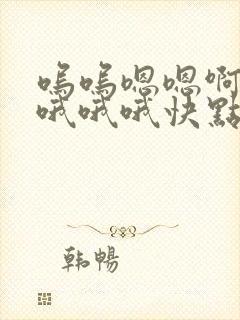 嗚嗚嗯嗯啊
哦哦哦快點
韩暢